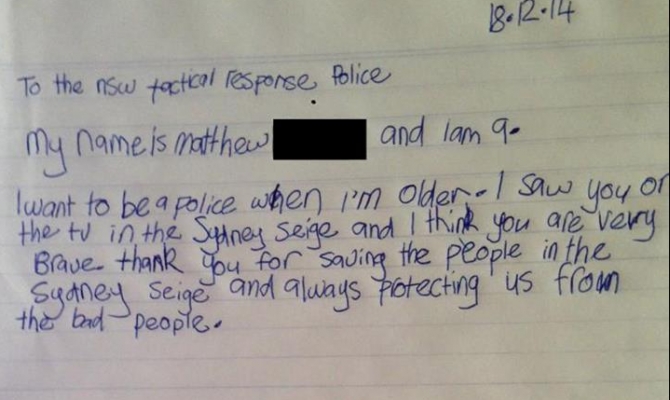 18.12.14
To the nsw tactical response Police
My name is matthew and I am 9.
I want to be a police when I'm older. I saw you on
the tv in the Sydney seige and I think you are very
Brave. thank you for saving the people in the
Sydney seige and always protecting us from
the bad people.